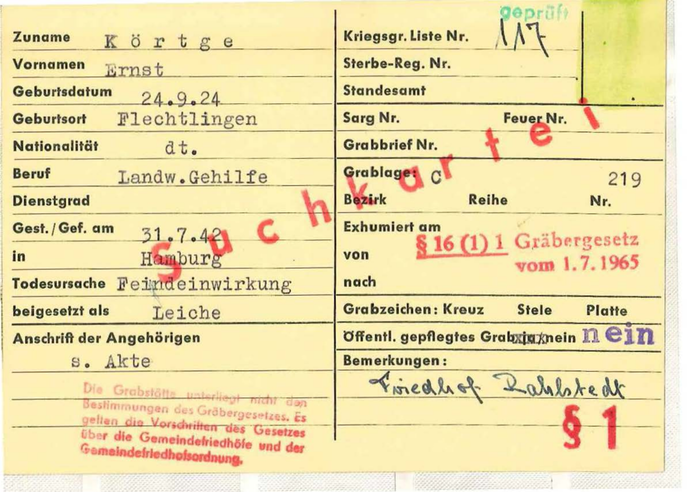 geprüft
Zuname Körtge
Vornamen Ernst
Geburtsdatum 24.9.24
Geburtsort Flechtlingen
Nationalität dt.
Beruf Landw.Gehilfe
Dienstgrad
Gest./Gef. am 31.7.42
in Hamburg
Todesursache Feindeinwirkung
beigesetzt als Leiche
Anschrift der Angehörigen
s. Akte
Die Grabstätte unterliegt nicht den
Bestimmungen des Gräbergesetzes. Es
gelten die Vorschriften des Gesetzes
über die Gemeindefriedhöfe und der
Gemeindefriedhofsordnung.
Suchkartei
Kriegsgr. Liste Nr. 117
Sterbe-Reg. Nr.
Standesamt
Sarg Nr. Feuer Nr.
Grabbrief Nr.
Grablage: C 219
Bezirk Reihe Nr.
Exhumiert am
von
nach
§ 16 (1) 1 Gräbergesetz
vom 1.7.1965
Grabzeichen: Kreuz Stele Platte
Öffentl. gepflegtes Grab: ja nein nein
Bemerkungen:
Friedhof Rahlstedt
§ 1